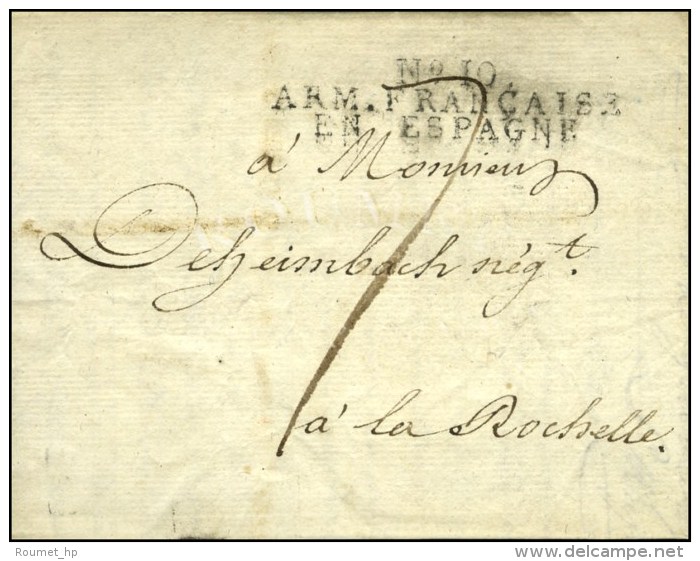 No 10.
ARM. FRANÇAISE
EN ESPAGNE
7
à Monsieur
Deheimbach négt.
à la Rochelle.
Roumet_hp
www.delcampe.net